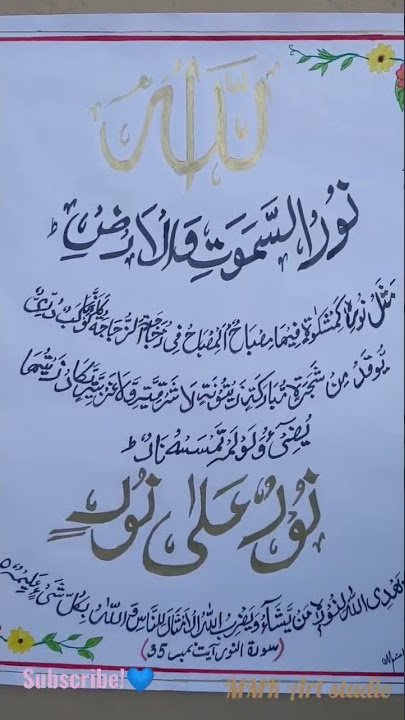 الله
نُورُ السَّمٰوٰتِ وَالْاَرْضِ ؕ
مَثَلُ نُورِهٖ كَمِشْكٰوةٍ فِيهَا مِصْبَاحٌ اَلْمِصْبَاحُ فِى زُجَاجَةٍ اَلزُّجَاجَةُ كَاَنَّهَا كَوْكَبٌ دُرِّىٌّ
يُّوقَدُ مِنْ شَجَرَةٍ مُّبَارَكَةٍ زَيْتُوْنَةٍ لَا شَرْقِيَّةٍ وَّلَا غَرْبِيَّةٍ يَّكَادُ زَيْتُهَا
يُضِىْٓءُ وَلَوْ لَمْ تَمْسَسْهُ نَارٌ ؕ
نُوْرٌ عَلٰى نُوْرٍ
يَهْدِى اللّٰهُ لِنُوْرِهٖ مَنْ يَّشَآءُ وَيَضْرِبُ اللّٰهُ الْاَمْثَالَ لِلنَّاسِ وَاللّٰهُ بِكُلِّ شَىْءٍ عَلِيْمٌ ۵
(سورۃ النور آیت نمبر 35)
Subscribe!💙
MMK Art studio